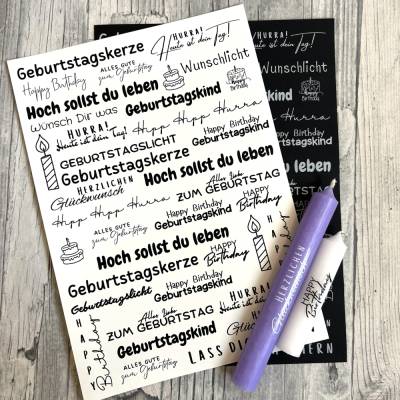 HURRA!
Geburtstagskerze
Heute ist dein Tag!
Happy Birthday
ALLES GUTE
zum Geburtstag
Wunschlicht
Hoch sollst du leben
Wünsch Dir was
Geburtstagskind
HURRA!
Heute ist dein Tag!
Hipp Hipp Hurra
GEBURTSTAGSLICHT
Happy Birthday
Geburtstagskind
Geburtstagskerze
HERZLICHEN
Glückwunsch
Hoch sollst du leben
Hipp Hipp Hurra
Alles liebe
ZUM GEBURTSTAG
Happy Birthday
Geburtstagskind
ALLES GUTE
zum Geburtstag
Hoch sollst du leben
Geburtstagskerze
HAPPY
Birthday
Geburtstagslicht
Happy Birthday
Geburtstagskind
Alles liebe
ZUM GEBURTSTAG
HURRA!
HAPPY
Birthday
Geburtstagskind
ALLES GUTE
zum Geburtstag
HAPPY
Birthday
HURRA!
Heute ist dein Tag!
Wunschlicht
Happy
Birthday
kind
Hurra
Happy Birthday
Geburtstagskind
leben
HERZLICHEN
HAPPY
Birthday